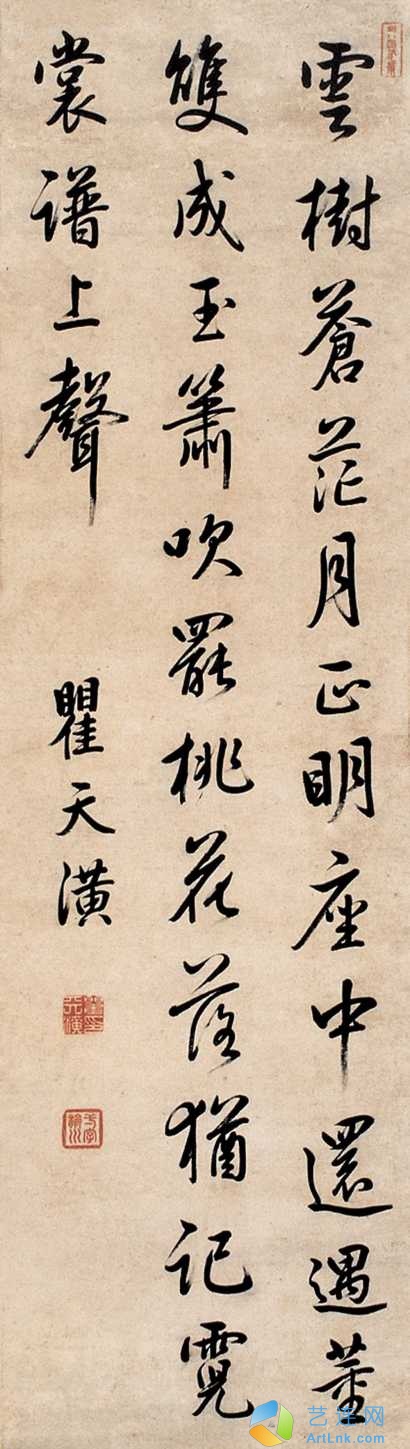 雲樹蒼茫月正明座中還遇董
雙成玉簫吹罷桃花落猶記霓
裳譜上聲
瞿天潢
艺连网
ArtLnk.com